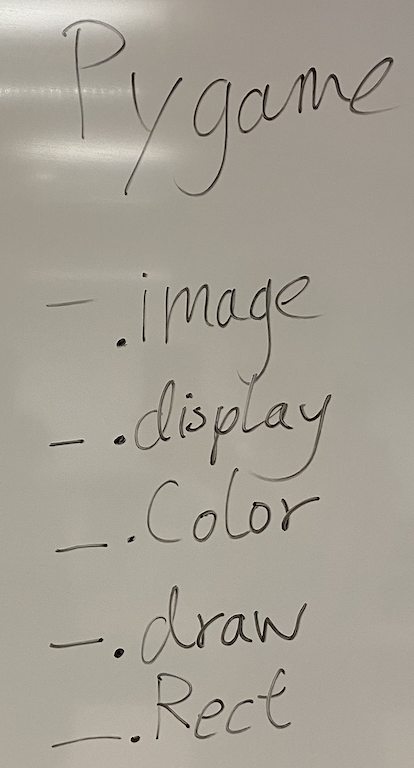 Pygame
- .image
- .display
- .Color
- .draw
- .Rect